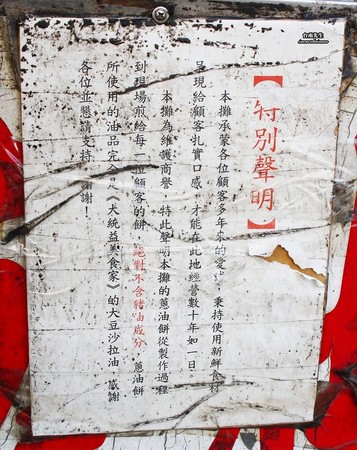 【特別聲明】
本攤承蒙各位顧客多年來的愛 秉持使用新鮮食材
呈現給顧客扎實口感,才能在此地經營數十年如一日。
本攤為維護商譽,特此聲明本攤的蔥油餅從製作過程
到現場煎給每 位顧客的餅,絕對不含豬油成分,蔥油餅
所使用的油品完 是《大統益美食家》的大豆沙拉油,感謝
各位並懇請支持 謝謝!